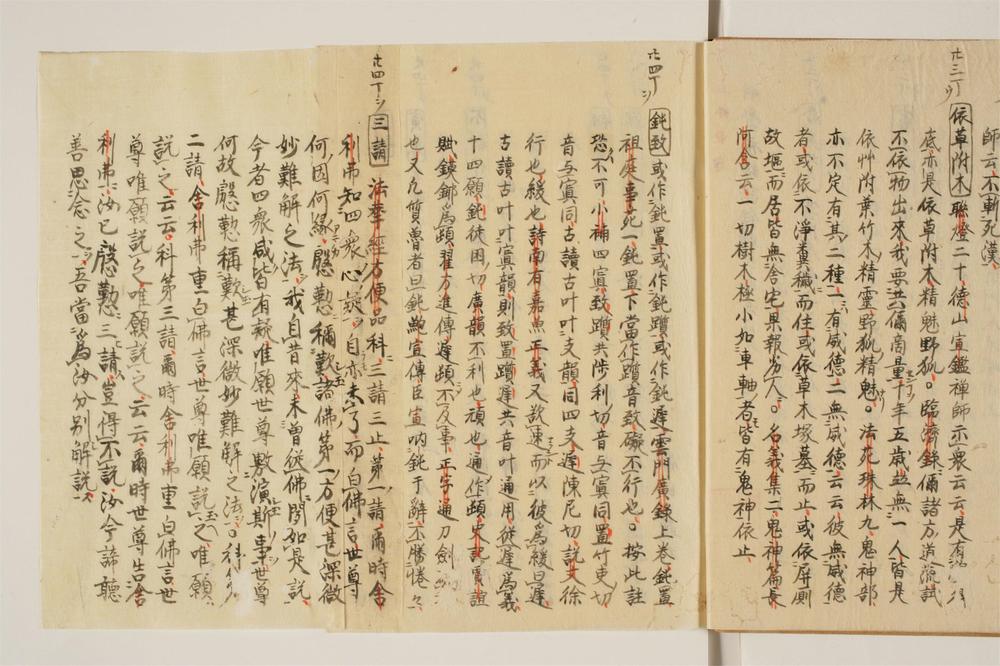 師云不斬死漢
廿三丁
依草附木 聯燈二十德山宣鑑禅師示衆云云是有
底亦是依草附木精魅野狐。臨濟録儞諸方道流試
不依物出來我要共儞商量十年五歳並無一人皆是
依艸附葉竹木精靈野狐精魅。法苑珠林九鬼神部
亦不定有其二種一有威德二無威德云云彼無威德
者或依不淨糞穢而住或依草木塚墓而止或依屏厠
故墟而居皆無舍宅果報劣人。名義集二鬼神篇長
阿含云一切樹木極小如車軸者皆有鬼神依止
廿四丁
鈍致 或作鈍置或作鈍躓或作鈍遅雲門廣録上卷鈍置
祖庭事苑一鈍置下當作躓音致礙不行也。按此註
恐不可小補四寘致躓共陟利切音与寘同置竹吏切
音与寘同古讀古叶叶支韻同四支遅陳尼切説文徐
行也緩也詩南有嘉魚正義又欲速而以彼為緩曰遅
古讀古叶叶寘韻則致置躓遅共音叶通用從遅為義
十四願鈍徒困切廣韻不利也頑也通作頓史記賈誼
賦鏌鋣為頓翟方進傳遅頓不及事正字通刀劍
也又凡質魯者曰鈍歟宣傳臣宣呐鈍于辭不勝惓々
廿四丁
三請 法華經方便品科三請三止第一請爾時舎
利弗知四衆心疑自亦未了而白佛言世尊
何因何縁慇懃稱歎諸佛第一方便甚深微
妙難解之法我自昔來未曾從佛聞如是説
今者四衆咸皆有疑唯願世尊敷演斯事世尊
何故慇懃稱歎甚深微妙難解之法。
二請舎利弗重白佛言世尊唯願説之唯願
説之云云科第三請爾時舎利弗重白佛言世
尊唯願説之唯願説之云云爾時世尊告舎
利弗汝已慇懃三請豈得不説汝今諦聽
善思念之吾當為汝分別解説